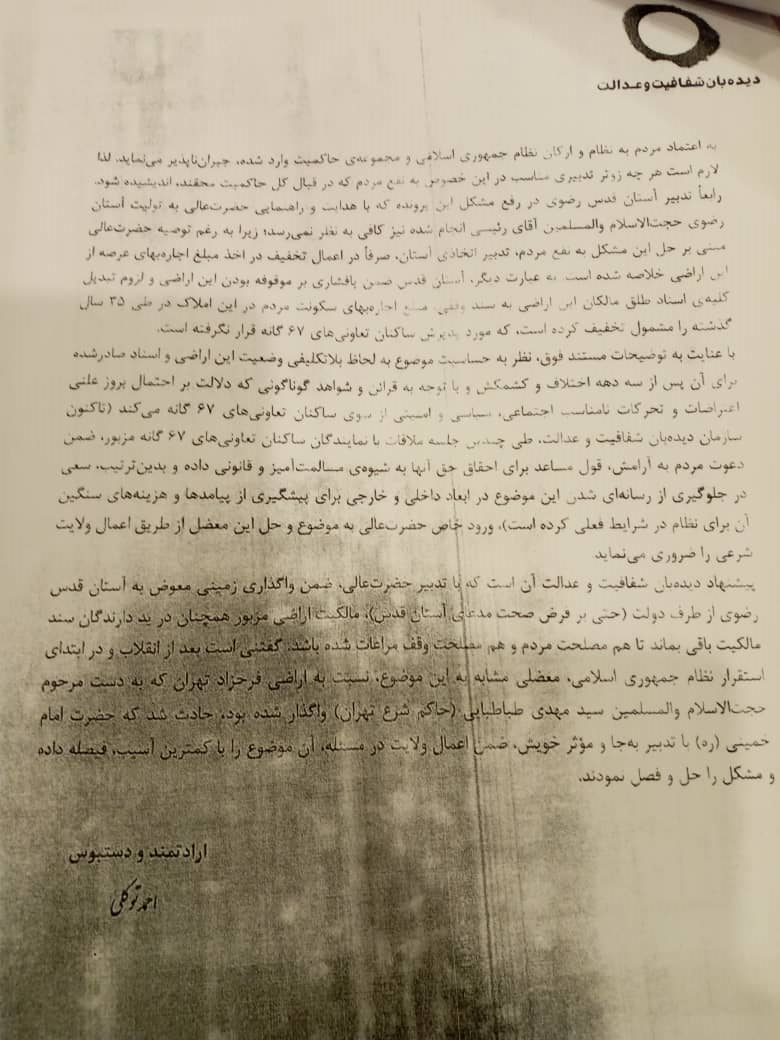 دیده‌بان شفافیت و عدالت
به اعتماد مردم به نظام و ارکان نظام جمهوری اسلامی و مجموعه‌ی حاکمیت وارد شده، جبران‌ناپذیر می‌نماید. لذا
لازم است هر چه زودتر تدبیری مناسب در این خصوص به نفع مردم که در قبال کل حاکمیت محقند، اندیشیده شود.
رابعاً تدبیر آستان قدس رضوی در رفع مشکل این پرونده که با هدایت و راهنمایی حضرت‌عالی به تولیت آستان
رضوی حجت‌الاسلام والمسلمین آقای رئیسی انجام شده نیز کافی به نظر نمی‌رسد؛ زیرا به رغم توصیه حضرت‌عالی
مبنی بر حل این مشکل به نفع مردم، تدبیر اتخاذی آستان، صرفاً در اعمال تخفیف در اخذ مبلغ اجاره‌بهای عرصه از
این اراضی خلاصه شده است. به عبارت دیگر، آستان قدس ضمن پافشاری بر موقوفه بودن این اراضی و لزوم تبدیل
کلیه‌ی اسناد طلق مالکان این اراضی به سند وقفی، مبلغ اجاره‌بهای سکونت مردم در این املاک در طی ۳۵ سال
گذشته را مشمول تخفیف کرده است، که مورد پذیرش ساکنان تعاونی‌های ۶۷ گانه قرار نگرفته است.
با عنایت به توضیحات مستند فوق، نظر به حساسیت موضوع به لحاظ بلاتکلیفی وضعیت این اراضی و اسناد صادرشده
برای آن پس از سه دهه اختلاف و کشمکش و با توجه به قرائن و شواهد گوناگونی که دلالت بر احتمال بروز علنی
اعتراضات و تحرکات نامناسب اجتماعی، سیاسی و امنیتی از سوی ساکنان تعاونی‌های ۶۷ گانه می‌کند (تاکنون
سازمان دیده‌بان شفافیت و عدالت، طی چندین جلسه ملاقات با نمایندگان ساکنان تعاونی‌های ۶۷ گانه مزبور، ضمن
دعوت مردم به آرامش، قول مساعد برای احقاق حق آنها به شیوه‌ی مسالمت‌آمیز و قانونی داده و بدین‌ترتیب، سعی
در جلوگیری از رسانه‌ای شدن این موضوع در ابعاد داخلی و خارجی برای پیشگیری از پیامدها و هزینه‌های سنگین
آن برای نظام در شرایط فعلی کرده است)، ورود خاص حضرت‌عالی به موضوع و حل این معضل از طریق اعمال ولایت
شرعی را ضروری می‌نماید.
پیشنهاد دیده‌بان شفافیت و عدالت آن است که با تدبیر حضرت‌عالی، ضمن واگذاری زمینی معوض به آستان قدس
رضوی از طرف دولت (حتی بر فرض صحت مدعای آستان قدس)، مالکیت اراضی مزبور همچنان در ید دارندگان سند
مالکیت باقی بماند تا هم مصلحت مردم و هم مصلحت وقف مراعات شده باشد. گفتنی است بعد از انقلاب و در ابتدای
استقرار نظام جمهوری اسلامی، معضلی مشابه به این موضوع، نسبت به اراضی فرحزاد تهران که به دست مرحوم
حجت‌الاسلام والمسلمین سید مهدی طباطبایی (حاکم شرع تهران) واگذار شده بود، حادث شد که حضرت امام
خمینی (ره) با تدبیر به‌جا و مؤثر خویش، ضمن اعمال ولایت در مسئله، آن موضوع را با کمترین آسیب، فیصله داده
و مشکل را حل و فصل نمودند.
ارادتمند و دستبوس
احمد توکلی